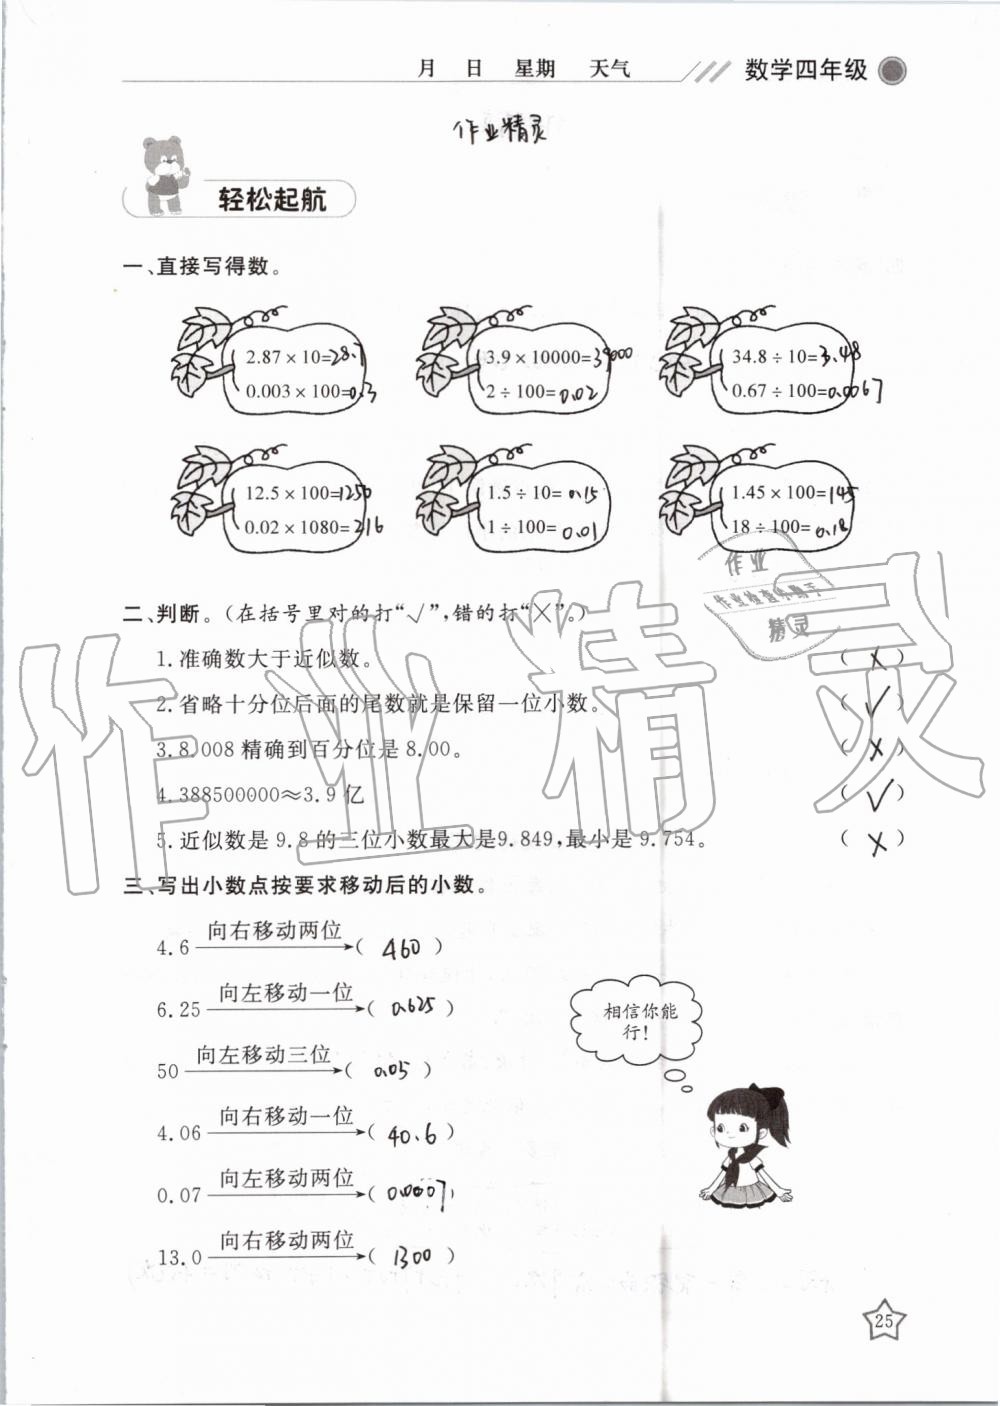 月 日 星期 天气 数学四年级
作业精灵
轻松起航
一、直接写得数。
2.87×10=28.7 3.9×10000=39000 34.8÷10=3.48
0.003×100=0.3 2÷100=0.02 0.67÷100=0.0067
12.5×100=1250 1.5÷10=0.15 1.45×100=145
0.02×1080=216 1÷100=0.01 18÷100=0.18
作业
作业检查小助手
精灵
二、判断。(在括号里对的打“√”,错的打“×”。)
1.准确数大于近似数。 (×)
2.省略十分位后面的尾数就是保留一位小数。 (√)
3.8.008精确到百分位是8.00。 (×)
4.388500000≈3.9亿 (√)
5.近似数是9.8的三位小数最大是9.849,最小是9.754。 (×)
作业精灵
三、写出小数点按要求移动后的小数。
4.6 向右移动两位 (460)
6.25 向左移动一位 (0.625)
50 向左移动三位 (0.05)
4.06 向右移动一位 (40.6)
0.07 向左移动两位 (0.0007)
13.0 向右移动两位 (1300)
相信你能
行!
25